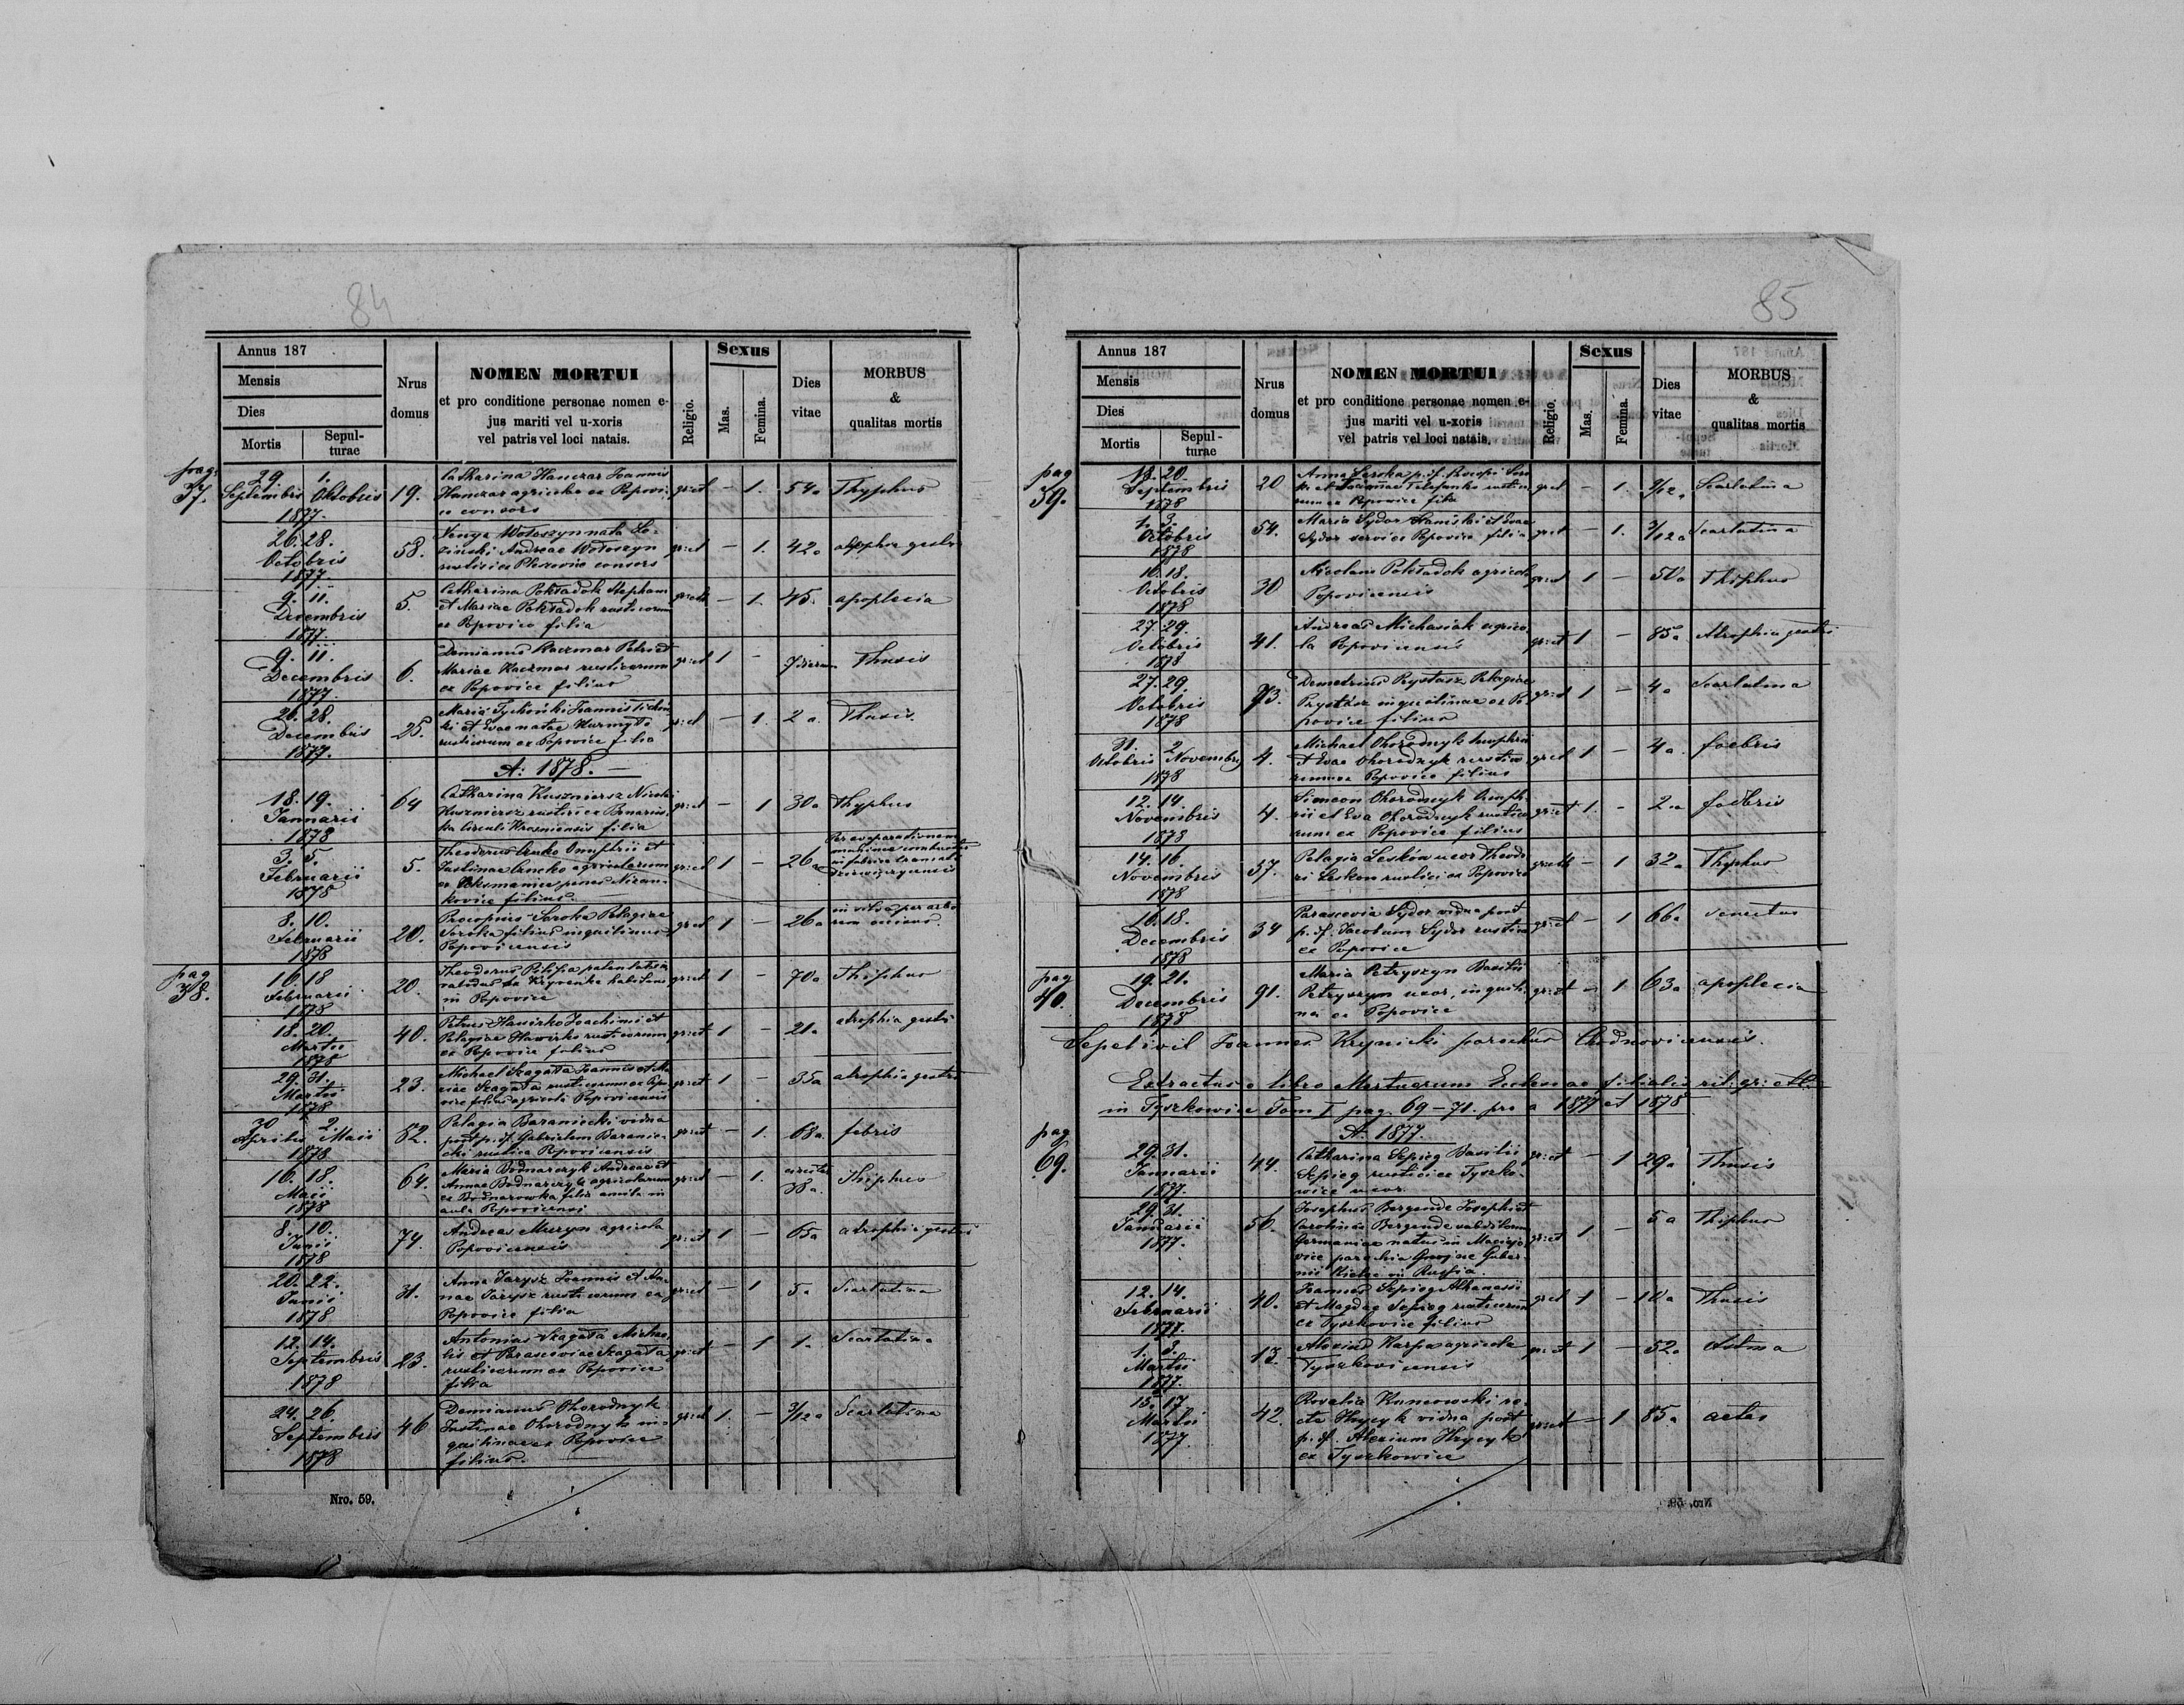 84
Annus 187
Mensis
Dies
Mortis
Sepul-
turae
Nrus
domus
NOMEN MORTUI
et pro conditione personae nomen e-
jus mariti vel u-xoris
vel patris vel loci natais.
Religio.
Sexus
Mas.
Femina.
Dies
vitae
MORBUS
&
qualitas mortis
pag.
37.
29. 1.
Septembris Oktobris
1877.
19.
Catharina Hanczar Joannis
Hanczar agricolae ex Popovi-
ce consors
gr:ct - 1. 54a Thyphus
26. 28.
Octobris
1877.
58.
Wołoszyn nata
Andreae Wołoszyn
consors
gr:ct - 1. 42a
9. 11.
Decembris
1877.
5.
Catharina Pokładok Stephani
et Mariae Pokładok rusticorum
ex Popovice filia
- 1. 45. apoplecia
9. 11.
Decembris
1877.
6.
Demianus Kaczmar Petri et
Mariae Kaczmar rusticorum
ex Popovice filius
gr:ct 1 - 7 dierum Thusis
26. 28.
Decembris
1877.
25.
Maria Joannis
et Evae natae
rusticorum ex Popovice filia
gr:ct - 1. 2a. Thusis.
A: 1878. —
18. 19.
Januarii
1878
64
Catharina Kuszniersz
Kuszniersz rustici ex
Circuli Krosniensis filia
gr:ct - 1 30a Thyphus
3. 5.
Februarii
1878
5.
Theodorus Onufrii et
Justinae agricolarum
ex penes Nizan-
kovice filius.
gr:ct 1 - 26a
8. 10.
Februarii
1878
20.
Procopius Soroka Pelagiae
Soroka filius inquilinus
Popovicensis
gr:ct 1 - 26a
pag
38.
16. 18
Februarii
1878
20.
Theodorus
ex habitans
in Popovice
gr:ct 1 - 70a Thiphus
18. 20.
Martii
1878
40.
Petrus Joachimi et
Pelagiae rusticorum
ex Popovice filius
gr:ct 1 - 21a atrophia
29. 31.
Martii
1878
23.
Michael Szagała Joannis et Ma-
riae Szagała rusticorum ex Popo-
vice filius agricola Popovicensis
gr:ct 1 - 35a atrophia
30 2.
Aprilis Maii
1878
82.
Pelagia Baraniecki vidua
post p. df. Gabrielem Baranie-
cki rustica Popovicensis
gr:ct - 1. 68a. febris
16. 18.
Maii
1878
64.
Maria Bodnarczyk Andreae et
Annae Bodnarczyk agricolarum
ex Bodnarowka filia in
aula Popovicensi
gr:ct - 1. 38a. Thiphus
8. 10.
Junii
1878
74.
Andreas Mazyn agricola
Popovicensis
gr:ct 1 - 65a atrophia
20. 22.
Junii
1878
31.
Anna Jarysz Joannis et An-
nae Jarysz rusticorum ex
Popovice filia
gr:ct - 1 5a Scarlatina
12. 14.
Septembris
1878
23.
Antonias Szagała Michae-
lis et Parasceviae Szagała
rusticorum ex Popovice
filia
gr:ct - 1 1. Scarlatina
24. 26.
Septembris
1878
46
Demianus Ohorodnyk
Justinae Ohorodnyk in-
quilinae ex Popovice
filius.
gr:ct 1. - 3/12a Scarlatina
Nro. 59.
85
Annus 187
Mensis
Dies
Mortis
Sepul-
turae
Nrus
domus
NOMEN MORTUI
et pro conditione personae nomen e-
jus mariti vel u-xoris
vel patris vel loci natais.
Religio.
Sexus
Mas.
Femina.
Dies
vitae
MORBUS
&
qualitas mortis
pag
39.
18. 20.
Septembris
1878
20
Anna Soroka p. df. Procopi Soro-
ka et
ex Popovice filia
gr:ct - 1. Scarlatina
1. 3.
Octobris
1878
54.
Maria Sydor et Evae
Sydor ex Popovice filia
gr:ct - 1. 3/12a Scarlatina
16. 18.
Octobris
1878
30
Nicolaus Pokładok agricola
Popovicensis
gr:ct 1 - 50a Thiphus
27. 29.
Octobris
1878
41.
Andreas Michasiak agrico-
la Popovicensis
gr:ct 1 - 85a Atrophia
27. 29.
Octobris
1878
93.
Demetrius Prystasz Pelagiae
Prystasz inquilinae ex Po-
povice filius
gr:ct 1 - 4a Scarlatina
31. 2
Octobris Novembris
1878
4.
Michael Ohorodnyk Onuphrii
et Evae Ohorodnyk rustico-
rum ex Popovice filius
gr:ct 1 - 4a. foebris
12. 14.
Novembris
1878
4.
Simeon Ohorodnyk Onuph-
rii et Eva Ohorodnyk rustico-
rum ex Popovice filius
gr:ct 1. - 2.a foebris
14. 16.
Novembris
1878
57.
Pelagia Leskon uxor Theodo-
ri Leskon rustici ex Popovice
- 1 32a Thyphus
16. 18.
Decembris
1878
34
Parascevia Sydor vidua post
p. df. Jacobum Sydor rustica
ex Popovice
gr:ct - 1 66a senectus
pag
40.
19. 21.
Decembris
1878
91.
Maria Petryszyn Basilii
Petryszyn uxor, inquili-
na ex Popovice
gr:ct - 1 63a apoplecia
Sepelivit Joannes Krynicki parochus Chodnovicensis.
Extractus e libro Mortuorum Ecclesiae filialis rit. gr: cath.
in Tyszkowice Tom I pag. 69-71. pro a 1877 et 1878
A. 1877.
pag
69.
29. 31.
Januarii
1877.
44.
Catharina Sepieg Basilii
Sepieg rustici ex Tyszko-
wice uxor.
gr:ct - 1 29a Thusis
29. 31.
Januarii
1877.
56.
Josephus Bergende Josephi et
Carolinae Bergende
Germaniae natus in
vice parochia Guber-
nii Kielce in Russia.
gr:ct 1 - 5a Thiphus
12. 14.
Februarii
1877.
40.
Joannes Sepieg Athanasii
et Magdae Sepieg rusticorum
ex Tyszkovice filius
gr:ct 1 - 10a Thusis
1. 3.
Martii
1877.
13.
Alexius Karpa agricola
Tyszkovicensis
gr:ct 1 - 52a Astma
15. 17.
Martii
1877.
42.
Rosalia
Hrycyk vidua post
p. df. Alexium Hrycyk
ex Tyszkowice
gr:ct - 1 85a aetas